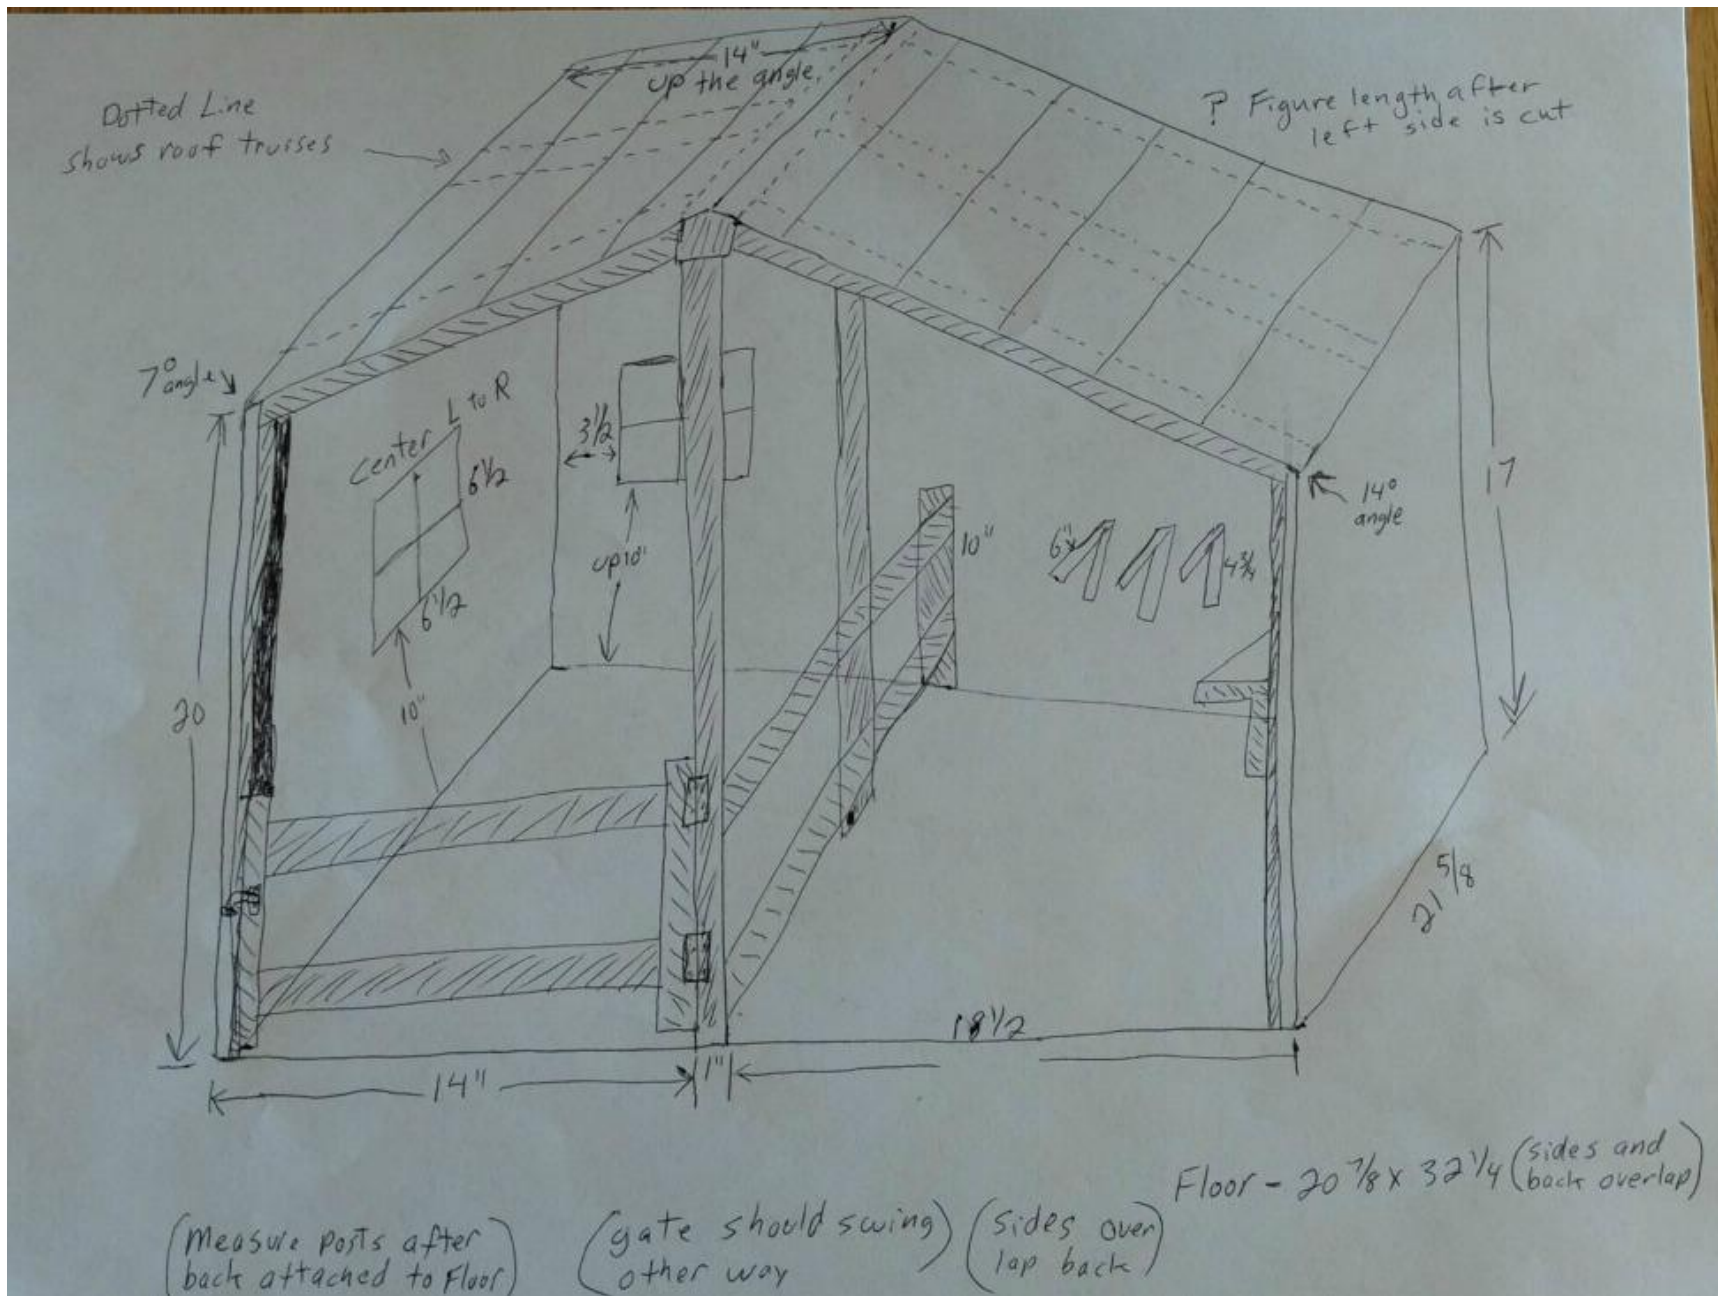 14"
up the angle
Dotted Line
shows roof trusses
? Figure length after
left side is cut
7° angle
Center L to R
6 1/2
6 1/2
10"
3 1/2
up 10"
10"
6"
4 3/4
14°
angle
17
20
21 5/8
18 1/2
14"
1"
Floor - 20 7/8 x 32 1/4 (sides and
back overlap)
(Measure posts after
back attached to Floor)
(gate should swing
other way)
(sides over
lap back)